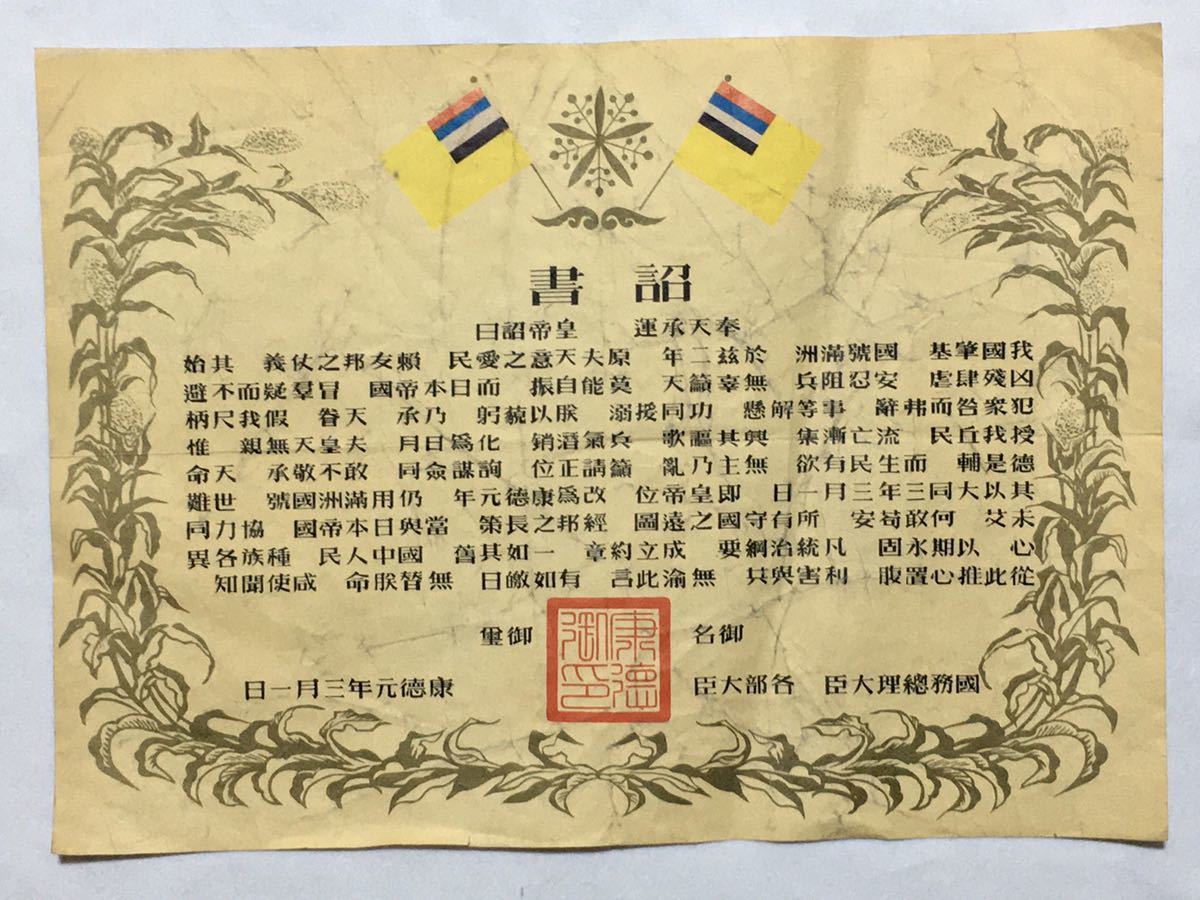 詔書
奉天承運 皇帝詔曰
我國肇基 國號滿洲 於茲二年 原夫天意之愛民 賴友邦之仗義 其始
凶殘肆虐 安忍阻兵 無辜籲天 莫能自振 而日本帝國 冒羣疑而不避
犯衆咎而弗辭 事等解懸 功同援溺 朕以藐躬 乃承 天眷 假我尺柄
授我丘民 流亡漸集 興其謳歌 兵氣潛銷 化爲日月 夫皇天無親 惟
德是輔 而生民有欲 無主乃亂 籲請正位 詢謀僉同 敢不敬承 天命
其以大同三年三月一日 即皇帝位 改爲康德元年 仍用滿洲國號 世難
未艾 何敢苟安 所有守國之遠圖 經邦之長策 當與日本帝國 協力同
心 以期永固 凡統治綱要 成立約章 一如其舊 國中人民 種族各異
從此推心置腹 利害與共 無渝此言 有如皦日 無替朕命 咸使聞知
御名 御璽
康德
御印
國務總理大臣 各部大臣 康德元年三月一日